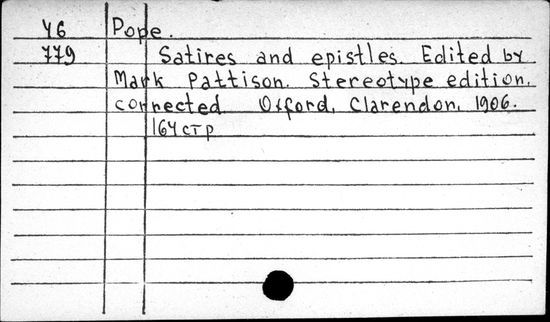 46 Pope.
779 Satires and epistles. Edited by
Mark Pattison. Stereotype edition,
corrected. Oxford, Clarendon, 1906.
164 стр